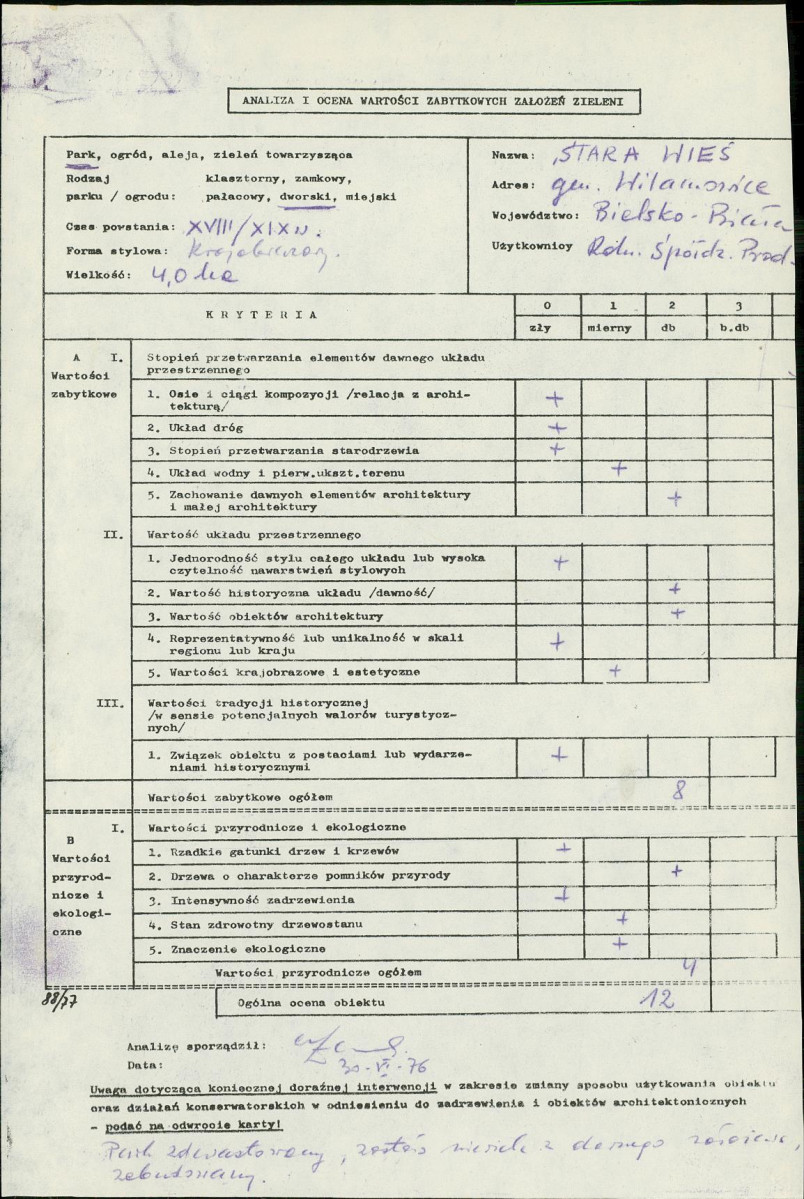 ANALIZA I OCENA WARTOŚCI ZABYTKOWYCH ZAŁOŻEŃ ZIELENI
Park, ogród, aleja, zieleń towarzysząca
Rodzaj klasztorny, zamkowy,
parku / ogrodu: pałacowy, dworski, miejski
Czas powstania: XVIII/XIX w.
Forma stylowa: Krajobrazowy.
Wielkość: 4,0 ha
Nazwa: STARA WIEŚ
Adres: gm. Wilamowice
Województwo: Bielsko-Biała
Użytkownicy Roln. Spółdz. Prod.
KRYTERIA 0 1 2 3
zły mierny db b.db
A I. Stopień przetwarzania elementów dawnego układu
Wartości przestrzennego
zabytkowe 1. Osie i ciągi kompozycji /relacja z archi- +
tekturą/
2. Układ dróg +
3. Stopień przetwarzania starodrzewia +
4. Układ wodny i pierw.ukszt.terenu +
5. Zachowanie dawnych elementów architektury +
i małej architektury
II. Wartość układu przestrzennego
1. Jednorodność stylu całego układu lub wysoka +
czytelność nawarstwień stylowych
2. Wartość historyczna układu /dawność/ +
3. Wartość obiektów architektury +
4. Reprezentatywność lub unikalność w skali +
regionu lub kraju
5. Wartości krajobrazowe i estetyczne +
III. Wartości tradycji historycznej
/w sensie potencjalnych walorów turystycz-
nych/
1. Związek obiektu z postaciami lub wydarze- +
niami historycznymi
Wartości zabytkowe ogółem 8
I. Wartości przyrodnicze i ekologiczne
B
Wartości 1. Rzadkie gatunki drzew i krzewów +
przyrod- 2. Drzewa o charakterze pomników przyrody +
nicze i 3. Intensywność zadrzewienia +
ekologi- 4. Stan zdrowotny drzewostanu +
czne 5. Znaczenie ekologiczne +
Wartości przyrodnicze ogółem 4
88/77 Ogólna ocena obiektu 12
Analizę sporządził:
Data: 30-VI-76
Uwaga dotycząca koniecznej doraźnej interwencji w zakresie zmiany sposobu użytkowania obiektu
oraz działań konserwatorskich w odniesieniu do zadrzewienia i obiektów architektonicznych
- podać na odwrocie karty!
Park zdewastowany, zostało niewiele z dawnego założenia,
zabudowany.